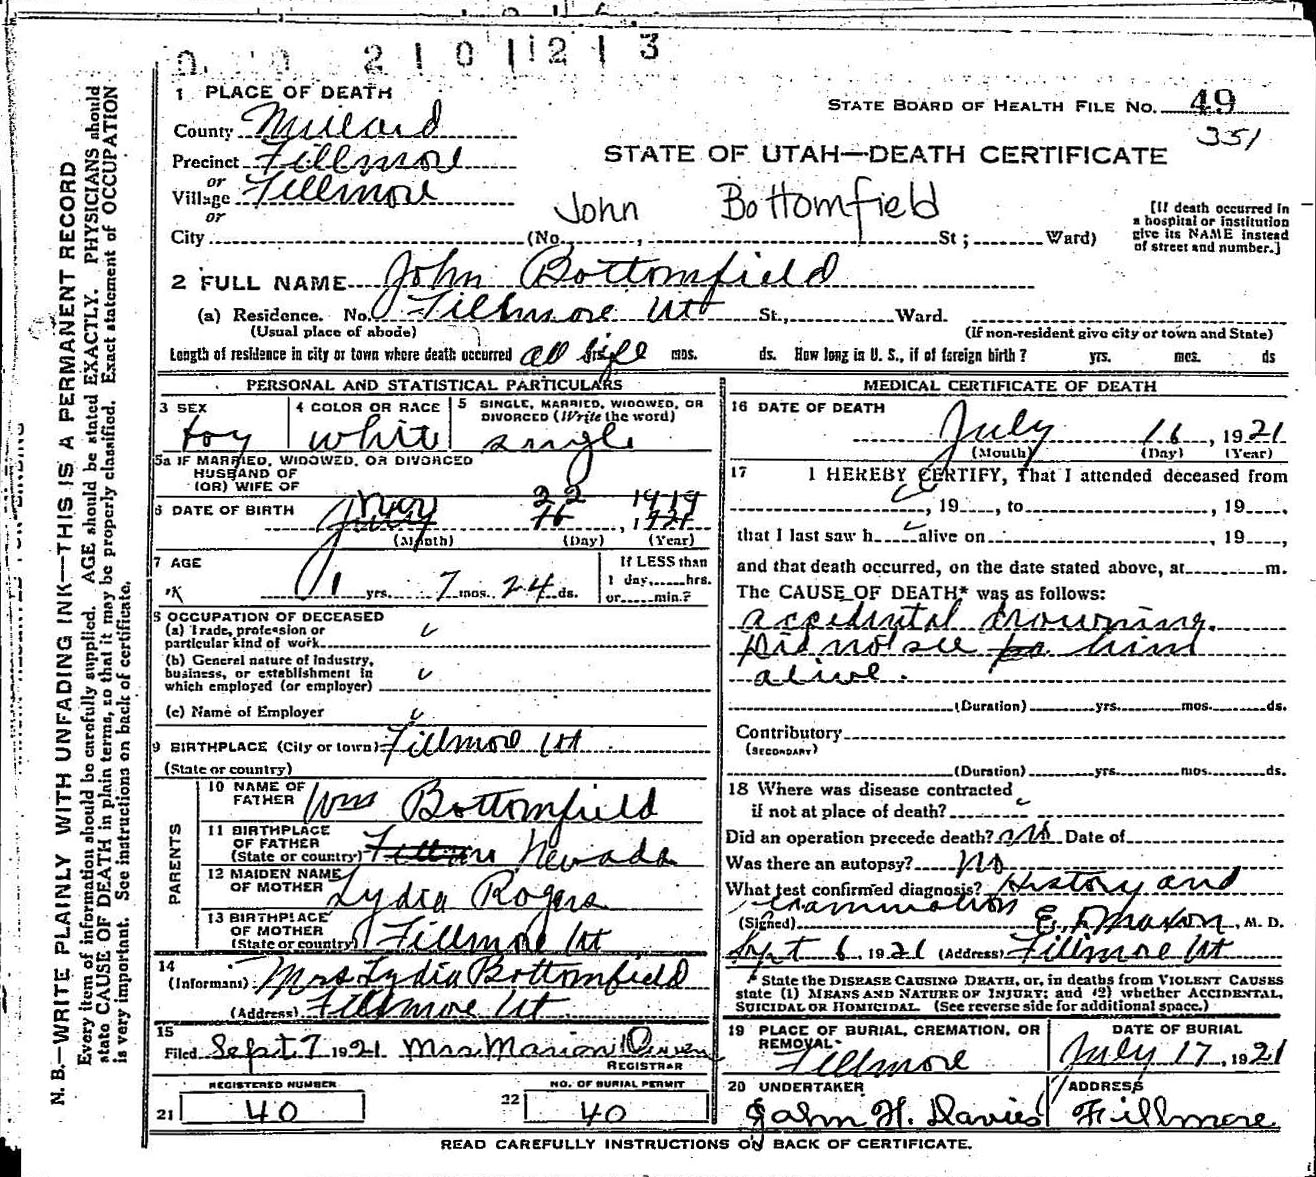 2 1 0 1 2 1 3
1 PLACE OF DEATH
STATE BOARD OF HEALTH FILE NO. 49
351
County Millard
Precinct Fillmore
or
Village Fillmore
or
STATE OF UTAH—DEATH CERTIFICATE
John Bottomfield
City (No. , St; Ward)
[If death occurred in
a hospital or institution
give its NAME instead
of street and number.]
2 FULL NAME John Bottomfield
(a) Residence. No. Fillmore Ut St., Ward.
(Usual place of abode) (If non-resident give city or town and State)
Length of residence in city or town where death occurred all life mos. ds. How long in U. S., if of foreign birth? yrs. mos. ds
PERSONAL AND STATISTICAL PARTICULARS
3 SEX
boy
4 COLOR OR RACE
white
5 SINGLE, MARRIED, WIDOWED, OR
DIVORCED (Write the word)
single
5a IF MARRIED, WIDOWED, OR DIVORCED
HUSBAND OF
(OR) WIFE OF
6 DATE OF BIRTH Nov 22 1919
July 16, 1921
(Month) (Day) (Year)
7 AGE
1 yrs. 7 mos. 24 ds.
If LESS than
1 day, hrs.
or min.?
8 OCCUPATION OF DECEASED
(a) Trade, profession or
particular kind of work
(b) General nature of Industry,
business, or establishment in
which employed (or employer)
(c) Name of Employer
9 BIRTHPLACE (City or town) Fillmore Ut
(State or country)
PARENTS
10 NAME OF
FATHER Wm Bottomfield
11 BIRTHPLACE
OF FATHER
(State or country) Fillmore Nevada
12 MAIDEN NAME
OF MOTHER Lydia Rogers
13 BIRTHPLACE
OF MOTHER
(State or country) Fillmore Ut
14
(Informant) Mrs Lydia Bottomfield
(Address) Fillmore Ut
15
Filed Sept 7 1921 Mrs Marion
REGISTRAR
REGISTERED NUMBER
21 40
NO. OF BURIAL PERMIT
22 40
MEDICAL CERTIFICATE OF DEATH
16 DATE OF DEATH
July 16, 1921
(Month) (Day) (Year)
17 I HEREBY CERTIFY, That I attended deceased from
, 19 , to , 19 ,
that I last saw h alive on , 19 ,
and that death occurred, on the date stated above, at m.
The CAUSE OF DEATH* was as follows:
accidental drowning.
Did not see him
alive.
(Duration) yrs. mos. ds.
Contributory
(SECONDARY)
(Duration) yrs. mos. ds.
18 Where was disease contracted
if not at place of death?
Did an operation precede death? no Date of
Was there an autopsy? No
What test confirmed diagnosis? History and
examination
(Signed) E. Maxon, M. D.
Sept 6 1921 (Address) Fillmore Ut
* State the DISEASE CAUSING DEATH, or, in deaths from VIOLENT CAUSES
state (1) MEANS AND NATURE OF INJURY; and (2) whether ACCIDENTAL,
SUICIDAL OR HOMICIDAL. (See reverse side for additional space.)
19 PLACE OF BURIAL, CREMATION, OR
REMOVAL
Fillmore
DATE OF BURIAL
July 17, 1921
20 UNDERTAKER
John H. Davies
ADDRESS
Fillmore
READ CAREFULLY INSTRUCTIONS ON BACK OF CERTIFICATE.
N. B.—WRITE PLAINLY WITH UNFADING INK—THIS IS A PERMANENT RECORD
Every item of information should be carefully supplied. AGE should be stated EXACTLY. PHYSICIANS should
state CAUSE OF DEATH in plain terms, so that it may be properly classified. Exact statement of OCCUPATION
is very important. See instructions on back of certificate.